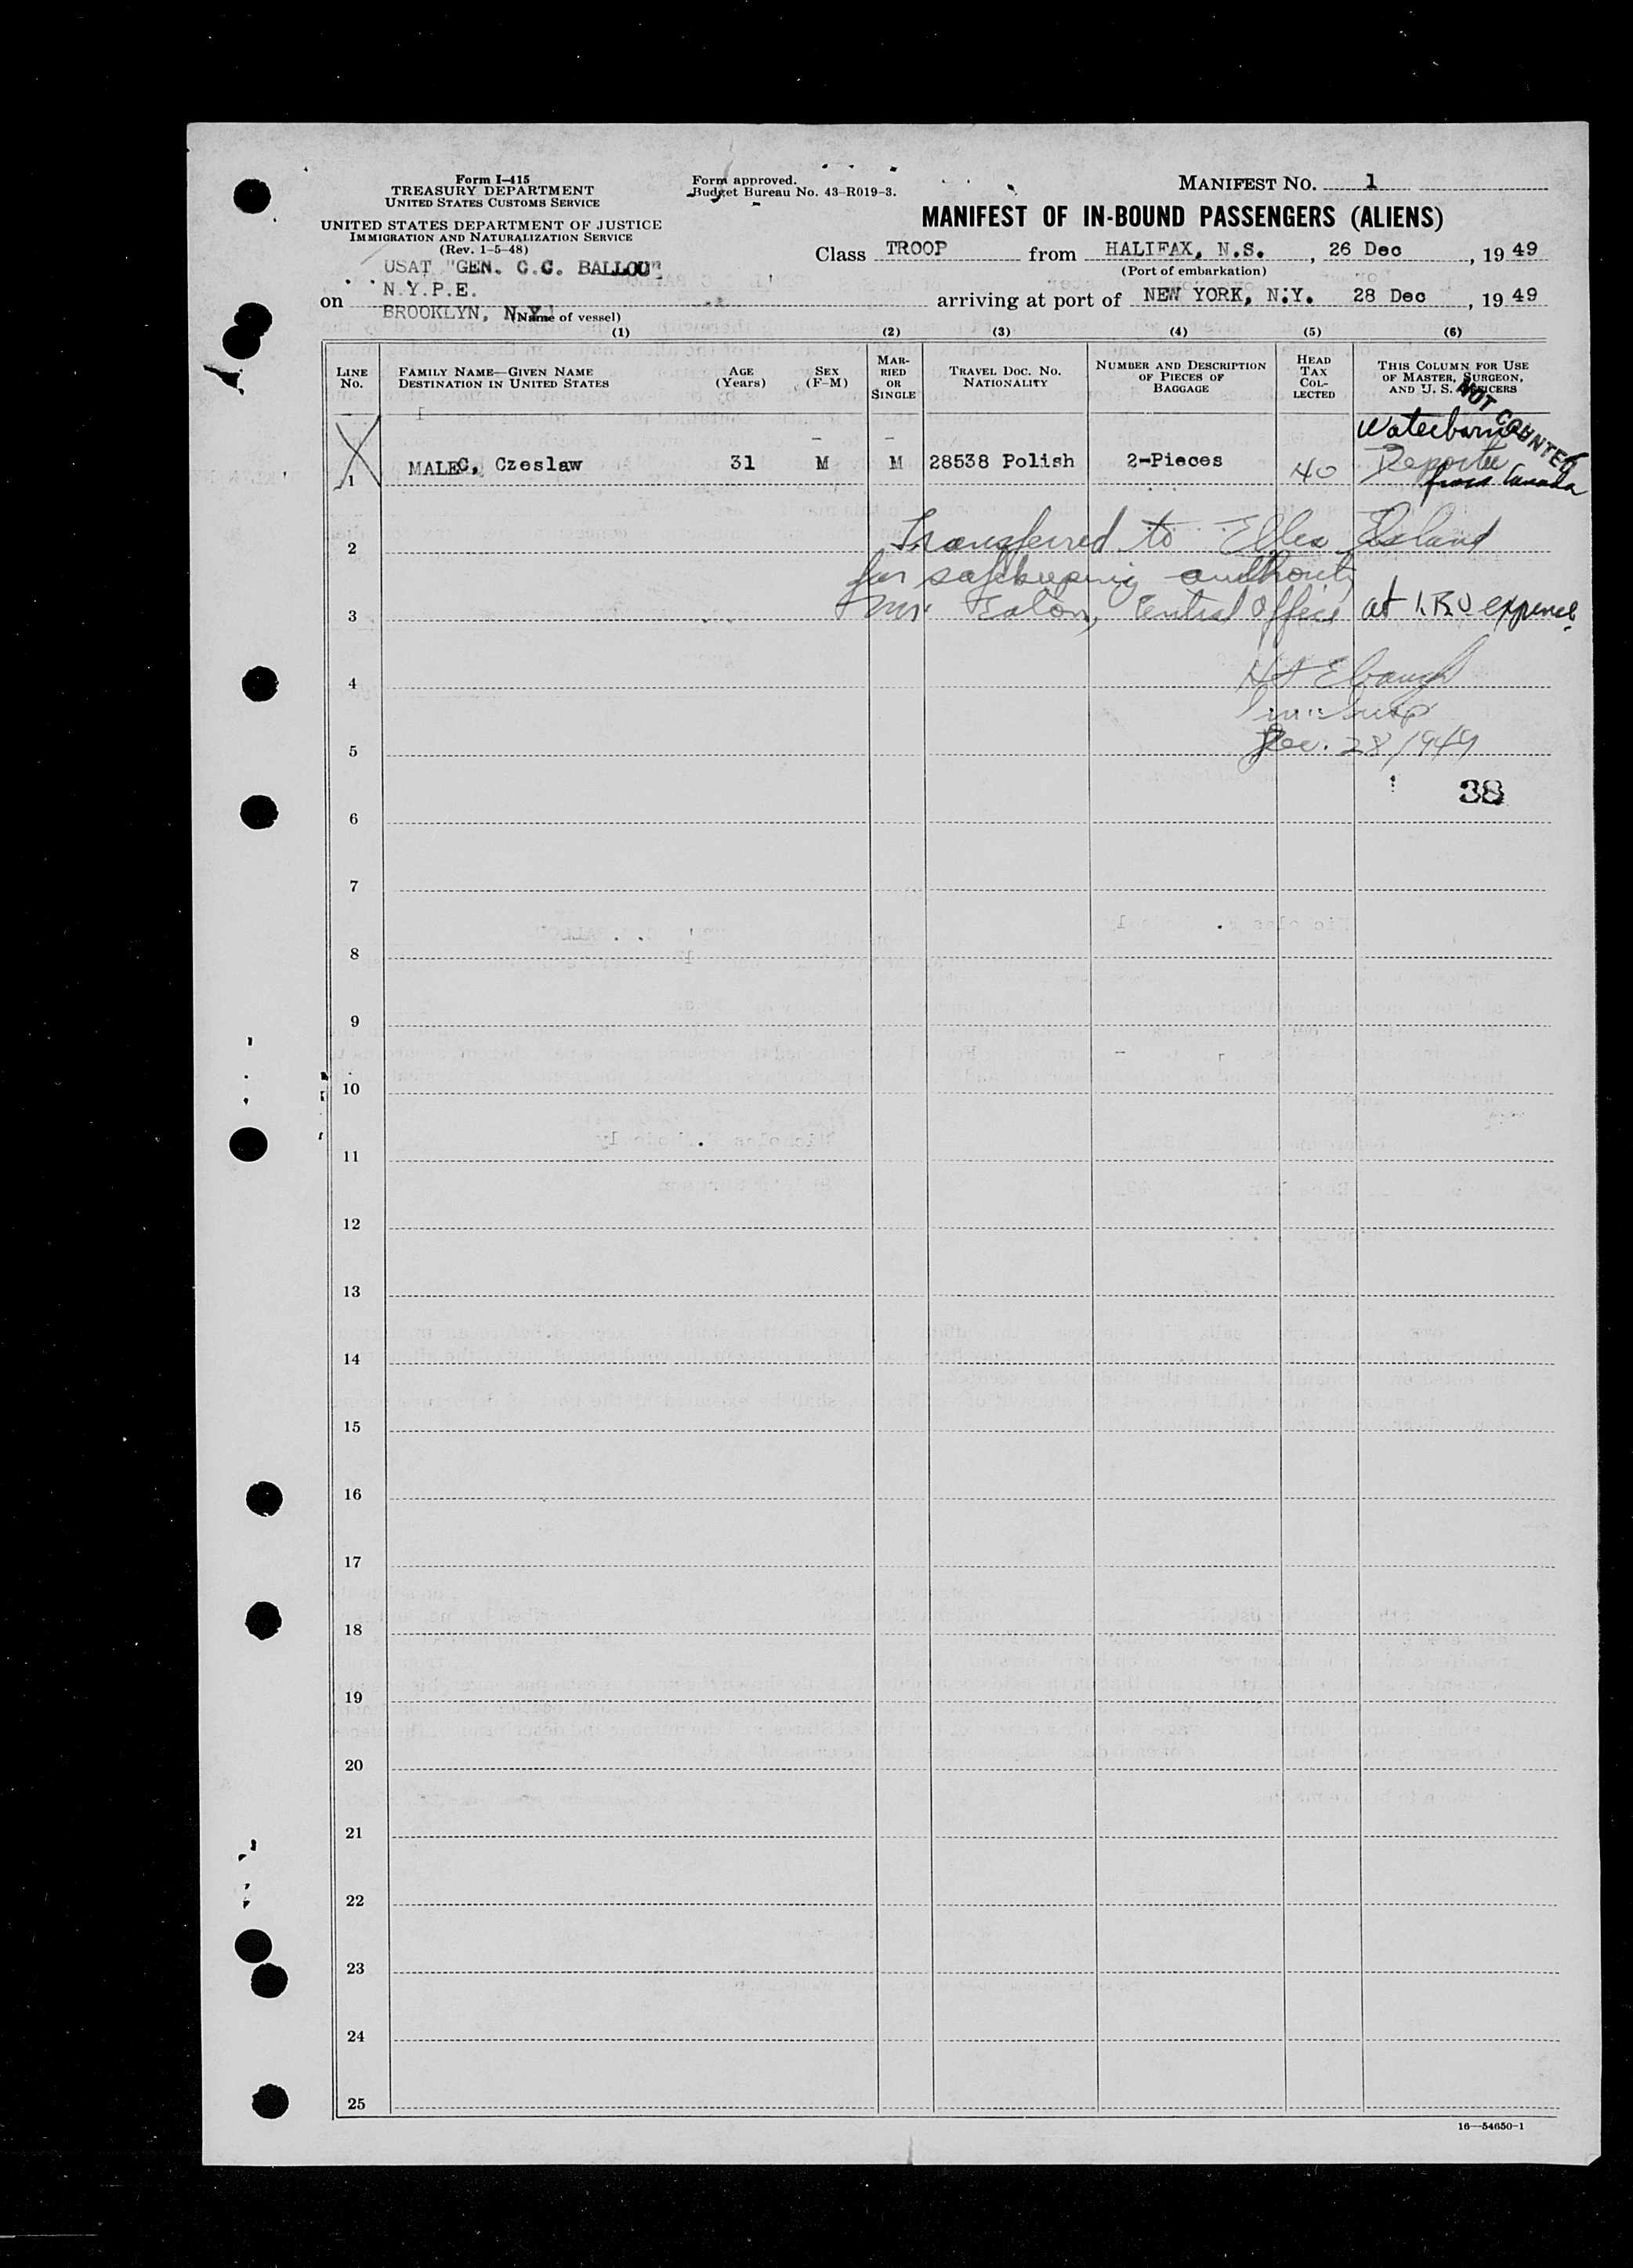 Form I-415
TREASURY DEPARTMENT
UNITED STATES CUSTOMS SERVICE
UNITED STATES DEPARTMENT OF JUSTICE
IMMIGRATION AND NATURALIZATION SERVICE
(Rev. 1-5-48)
Form approved.
Budget Bureau No. 43-R019-3.
MANIFEST NO. 1
MANIFEST OF IN-BOUND PASSENGERS (ALIENS)
Class TROOP from HALIFAX, N.S., 26 Dec, 19 49
(Port of embarkation)
USAT "GEN. C.C. BALLOU"
N.Y.P.E.
on BROOKLYN, N.Y. (Name of vessel)
arriving at port of NEW YORK, N.Y. 28 Dec, 19 49
(1) (2) (3) (4) (5) (6)
LINE NO.
FAMILY NAME—GIVEN NAME
DESTINATION IN UNITED STATES
AGE (Years)
SEX (F-M)
MARRIED OR SINGLE
TRAVEL DOC. NO. NATIONALITY
NUMBER AND DESCRIPTION OF PIECES OF BAGGAGE
HEAD TAX COLLECTED
THIS COLUMN FOR USE OF MASTER, SURGEON, AND U. S. OFFICERS
NOT COUNTED
1 MALEC, Czeslaw 31 M M 28538 Polish 2-Pieces
Deportee
from Canada
2 Transferred to Ellis Island
for safekeeping authority
3 Mr. Central Office at I.R.O expense.
4
5 Dec. 28/1949
38
6
7
8
9
10
11
12
13
14
15
16
17
18
19
20
21
22
23
24
25
16—54650-1